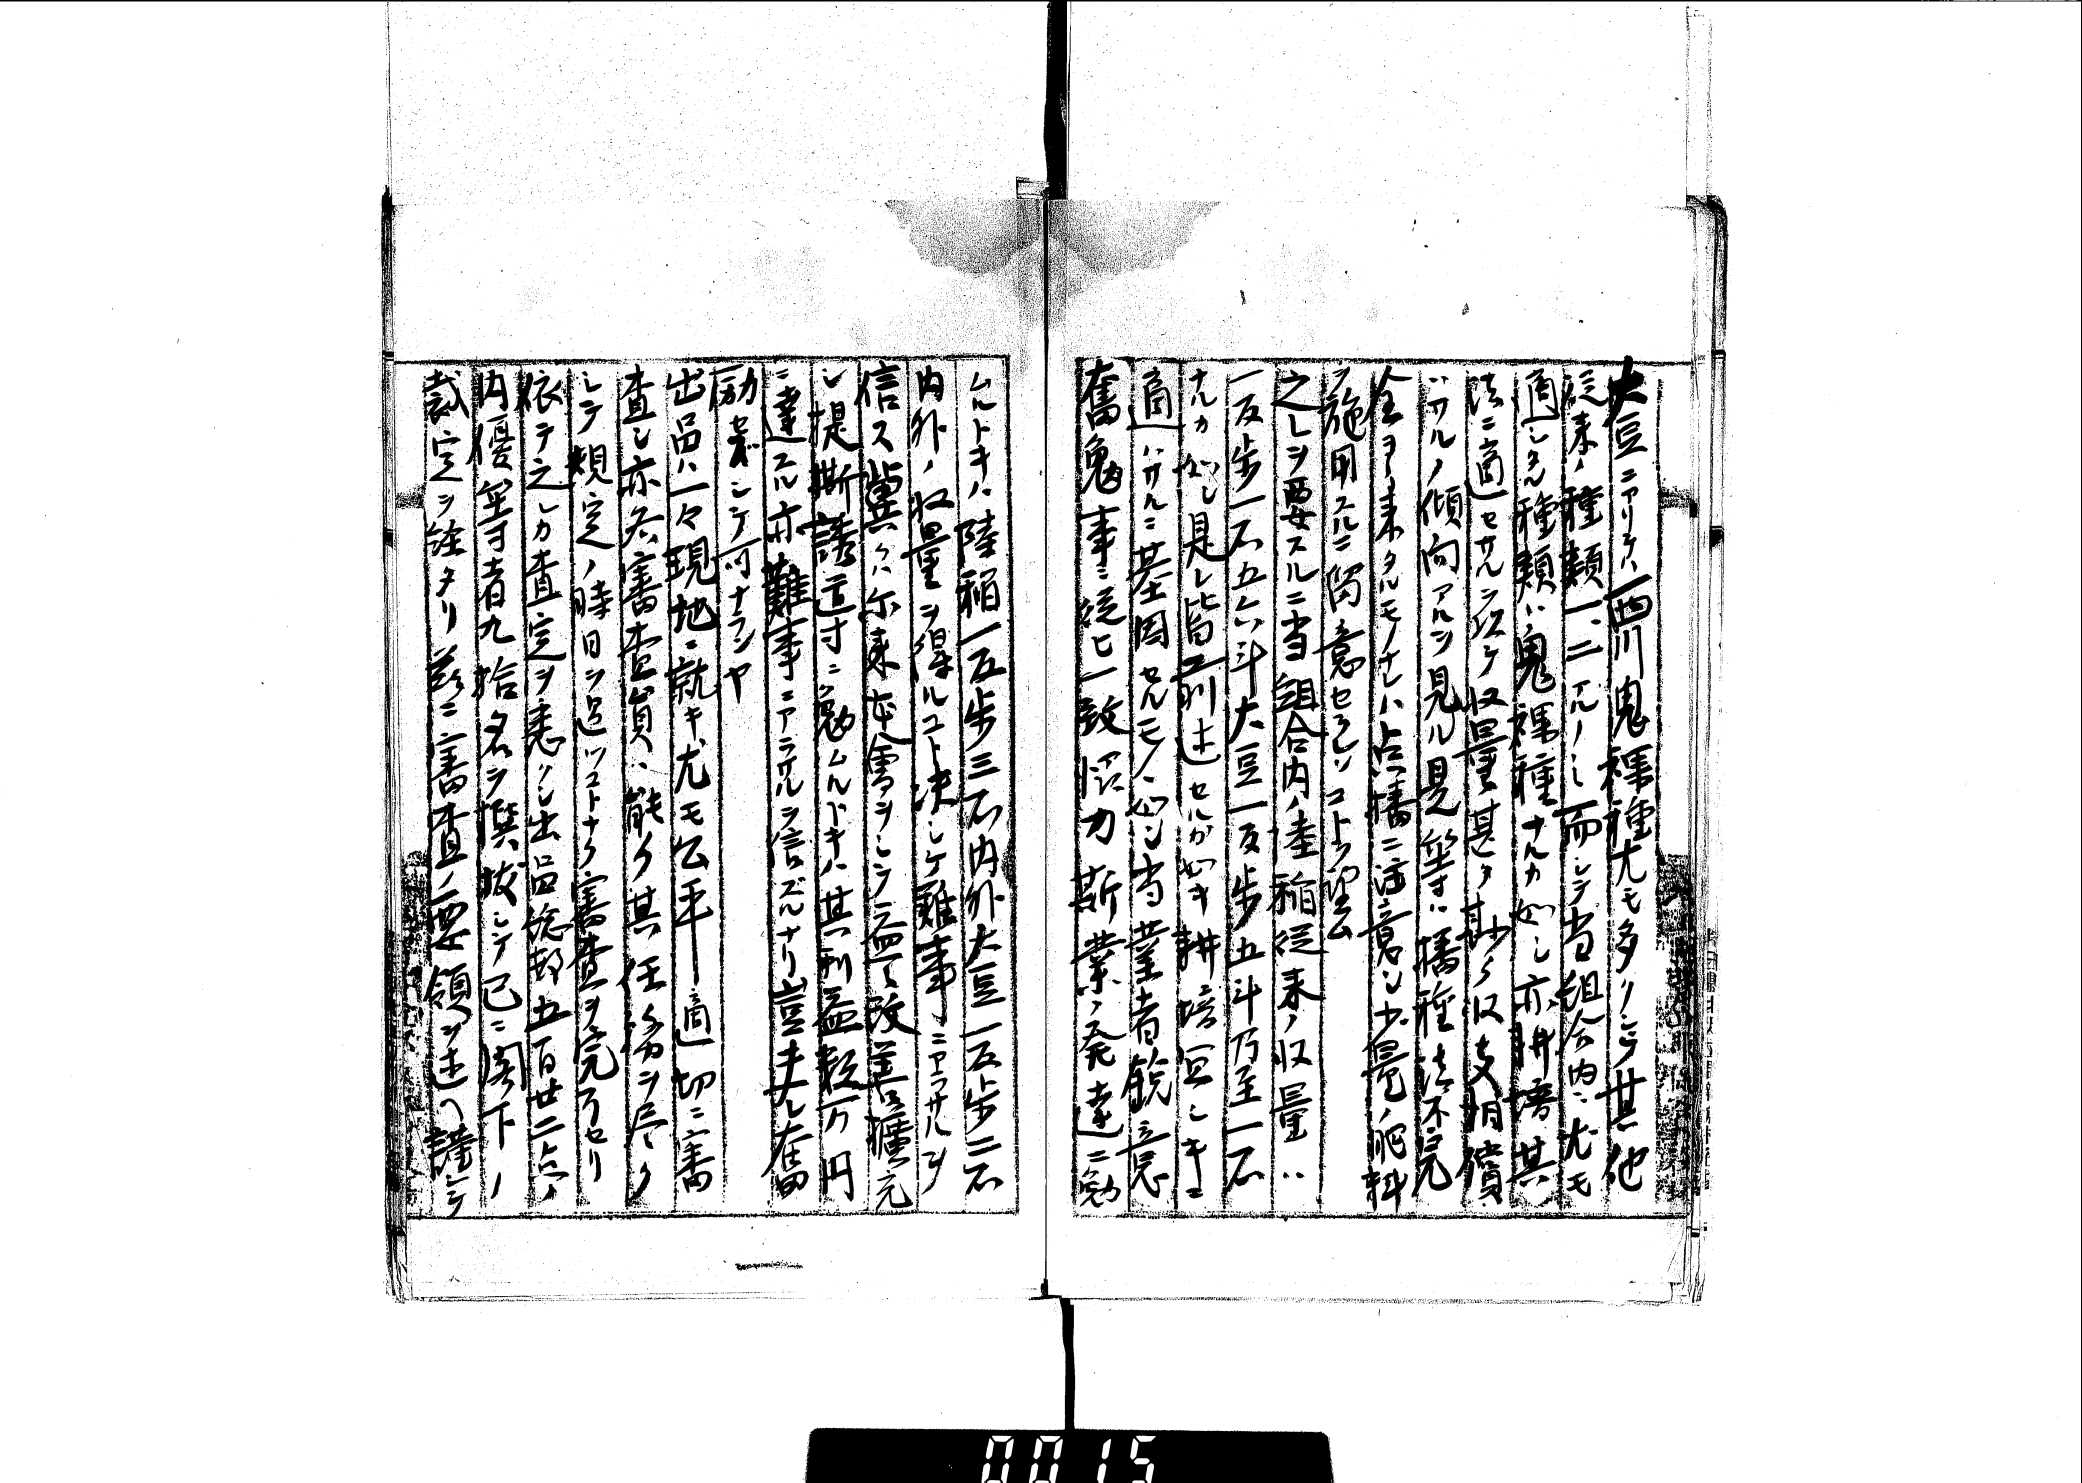 大豆ニアリテハ四川鬼裸種尤モ多ク其他
従来ノ種類一、二アルノミ而シテ当組合内ニ尤モ
適シタル種類ハ鬼裸種ナルカ如シ亦耕培其
法ニ適セサルヲ以テ収量甚タ尠ク収支相償
ハサルノ傾向アルヲ見ル是等ハ播種法不完
全ヨリ来タルモノナレハ点播ニ注意シ少量ノ肥料
ヲ施用スルニ留意セランコトヲ望ム
之レヲ要スルニ当組合内ノ陸稲従来ノ収量ハ
一反歩一石五六斗大豆一反歩五斗乃至一石
ナルカ如シ是レ皆前述セルガ如キ耕培宜シキニ
適ハサルニ基因セルモノヽ如シ当業者鋭意
奮勉事ニ従ヒ一致協力斯業ノ発達ニ勉
ムルトキハ陸稲一反歩三石内外大豆一反歩二石
内外ノ収量ヲ得ルコト決シテ難事ニアラサルヲ
信ス冀クハ尓来本会ヲシテ益々改善拡充
シ提撕誘導ニ勉ムルトキハ其利益数万円
ニ達スル亦難事ニアラサルヲ信ズルナリ豈夫レ奮
励セズシテ可ナランヤ
出品ハ一々現地ニ就キ尤モ公平適切ニ審
査シ亦各審査員ハ能ク其任務ヲ尽シ
シテ規定ノ時日ヲ過ツコトナク審査ヲ完了セリ
依テ之レカ査定ヲ悉クシ出品総部五百廿二点ノ
内優等者九拾名ヲ撰抜シテ已ニ閣下ノ
裁定ヲ経タリ茲ニ審査ノ要領ヲ述ヘ謹テ
0015